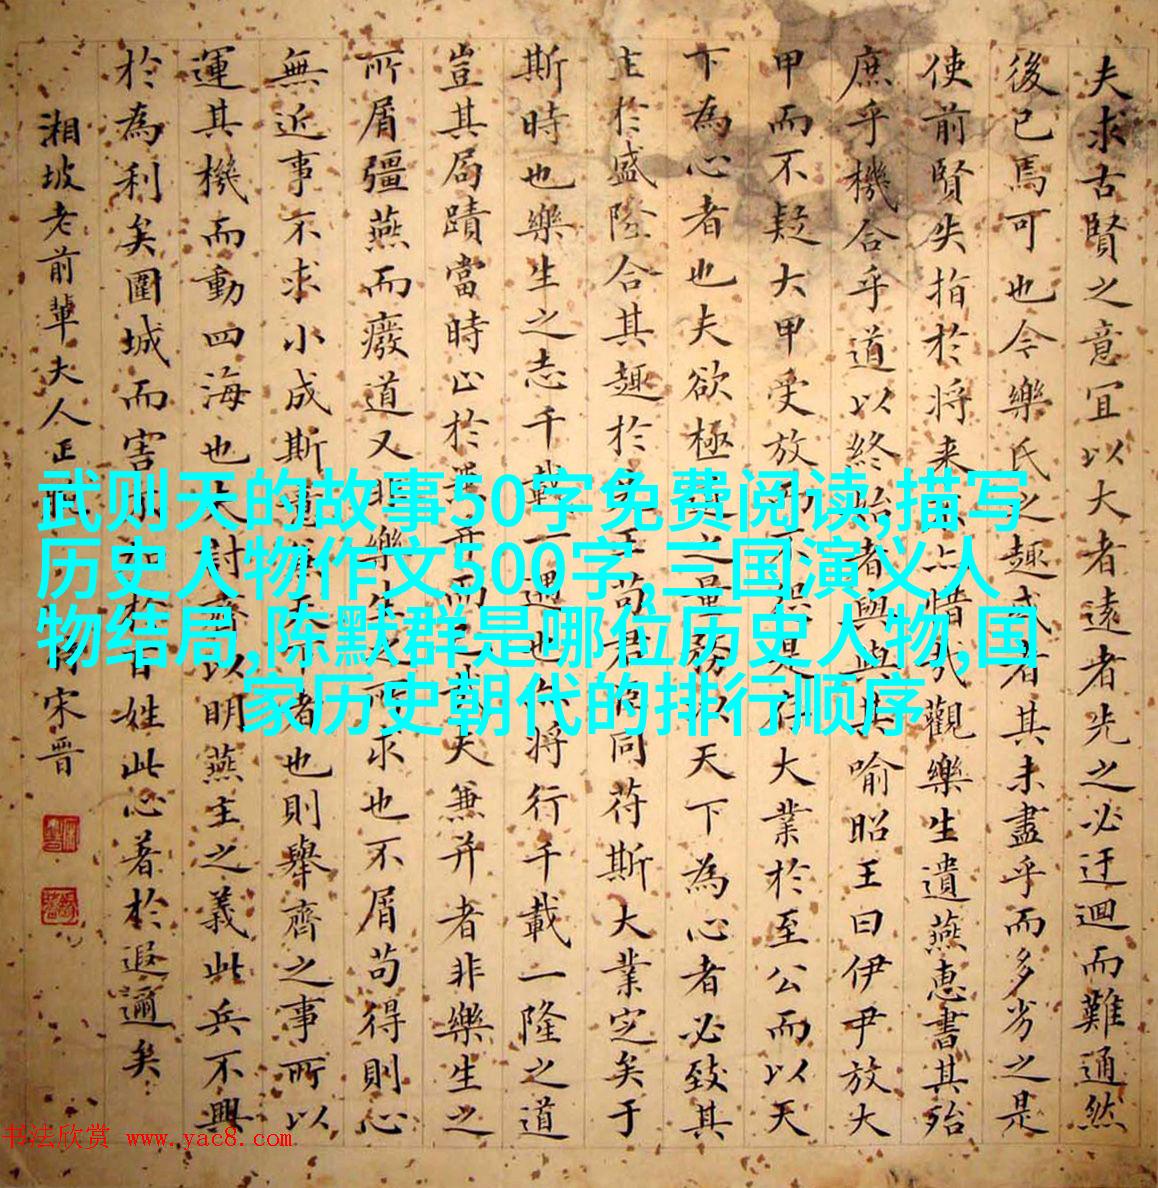 夫求古賢之意宜以大者遠者先之必迂迴而難通然
後已焉可也今樂氏之趣或者其未盡乎而多劣之是
使前賢失指於将来不亦惜哉觀樂生遺燕惠書其殆
庶乎機合乎道以終始者與與其喻昭王曰伊尹放大
甲而不疑大甲受放而不怨是存大業於至公而以天
下為心者也夫欲極道之量務以天下為心者必致其
主於盛隆合其趣於先王苟君臣同苻斯大業定矣于
斯時也樂生之志千載一遇也亦將行千載一隆之道
豈其局蹟當時止於兼并而已哉夫兼并者非樂生之
所屑彊燕而廢道又非樂生之所求也不屑苟得則心
無近事不求小成斯意兼天下者也則舉齊之事所以
運其機而動四海也夫討齊以明燕主之義此兵不興
於為利矣圍城而害不加於百姓此心著於遐邇矣
湘坡老前輩夫人正 宋晋
武则天的故事50字免费阅读,描写
历史人物作文500字,三国演义人
物结局,陈默群是哪位历史人物,国
家历史朝代的排行顺序
书法欣赏 www.yac8.com